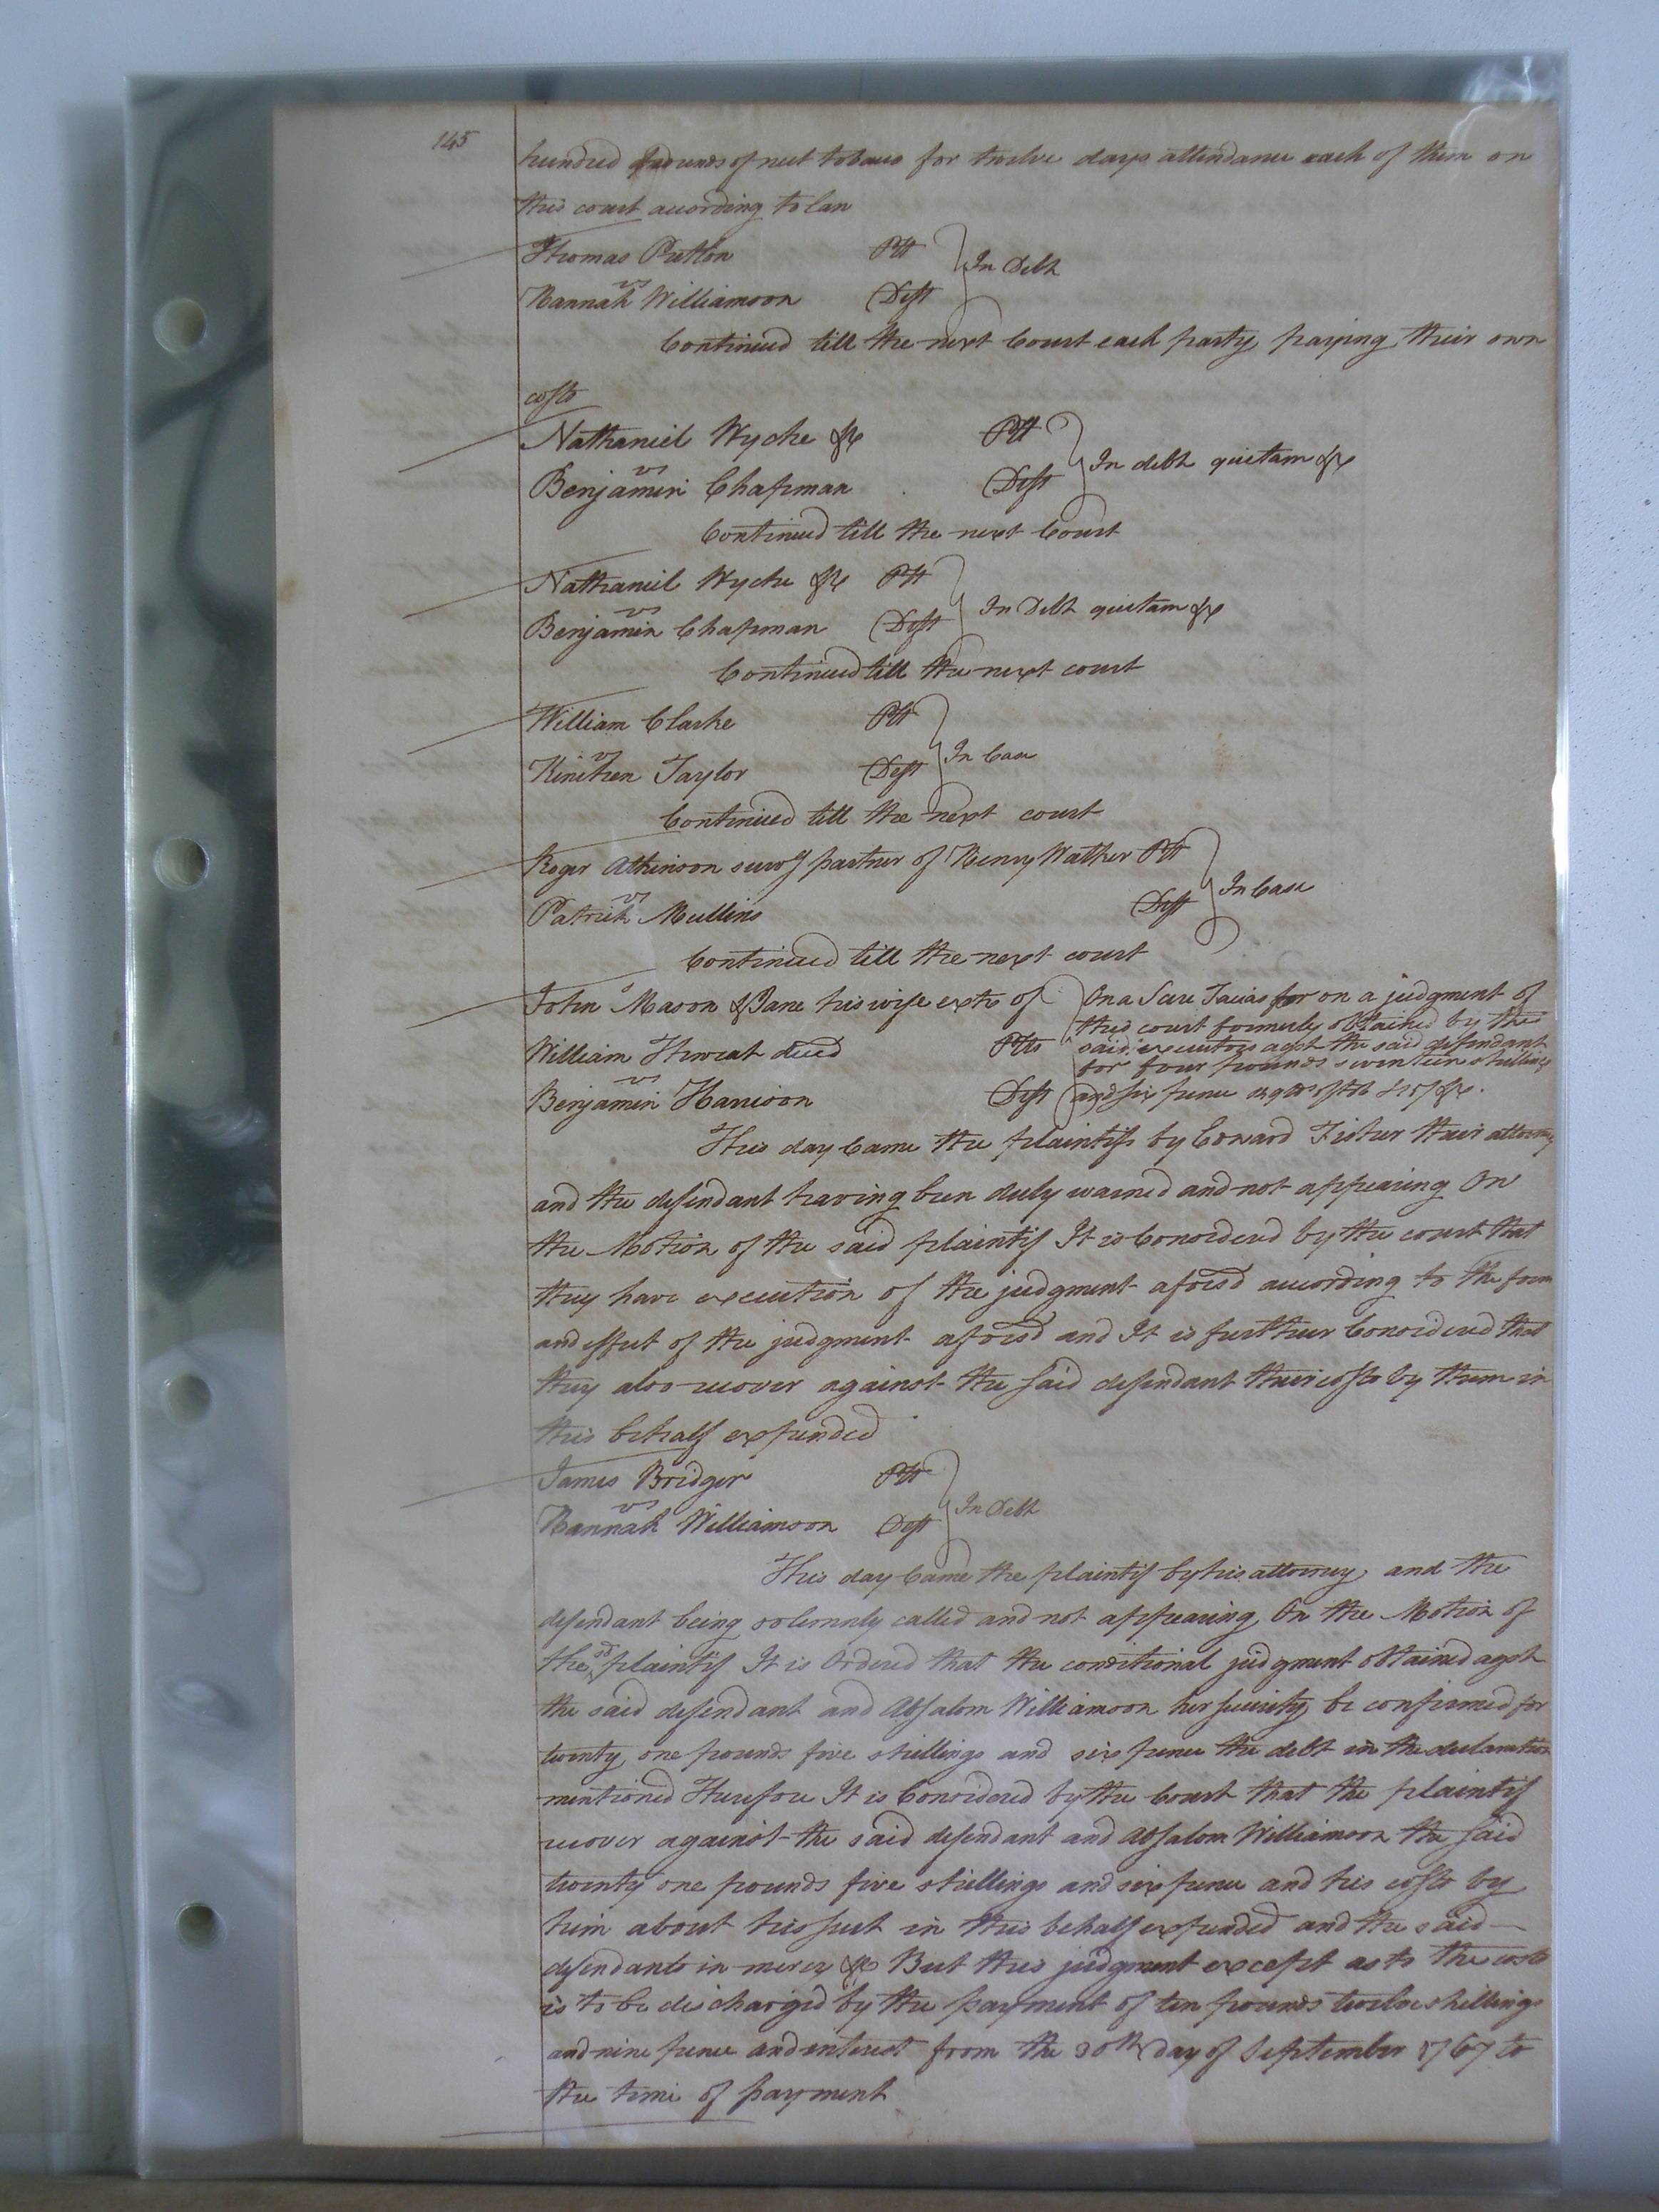 145
hundred pounds of nett tobacco for twelve days attendance each of them on
this court according to law
Thomas Pretlon Plt
vs In Debt
Hannah Williamson Deft
Continued till the next Court each party paying their own
costs
Nathaniel Wyche &c Plt
vs In debt quietam &c
Benjamin Chapman Deft
Continued till the next Court
Nathaniel Wyche &c Plt
vs In Debt quietam &c
Benjamin Chapman Deft
Continued till the next court
William Clarke Plt
vs In Case
Kinchen Taylor Deft
Continued till the next court
Roger Atkinson survg partner of Henry Walker Plt
vs In Case
Patrick Mullins Deft
Continued till the next court
John Mason & Jane his wife extrs of
William Threeat decd Plts
vs
Benjamin Harrison Deft
On a Scire Facias for on a judgment of
this court formerly obtained by the
said executors agst the said defendant
for four pounds seventeen shillings
and six pence
This day Came the plaintifs by Edward Fisher their attorney
and the defendant having been duly warned and not appearing On
the Motion of the said plaintif It is Considered by the court that
they have execution of the judgment aforesd according to the form
and effect of the judgment aforesd and It is further Considered that
they also recover against the said defendant their costs by them in
this behalf expended
James Bridger Plt
vs In Debt
Hannah Williamson Deft
This day Came the plaintif by his attorney and the
defendant being solemnly called and not appearing On the Motion of
the sd plaintif It is Ordered that the conditional judgment obtained agst
the said defendant and Absalom Williamson her security be confirmed for
twenty one pounds five shillings and six pence the debt in the declaration
mentioned Therefore It is Considered by the Court that the plaintif
recover against the said defendant and Absalom Williamson the said
twenty one pounds five shillings and six pence and his costs by
him about his suit in this behalf expended and the said
defendants in mercy &c But this judgment except as to the costs
is to be discharged by the payment of ten pounds twelve shillings
and nine pence and interest from the 30th day of September 1767 to
the time of payment